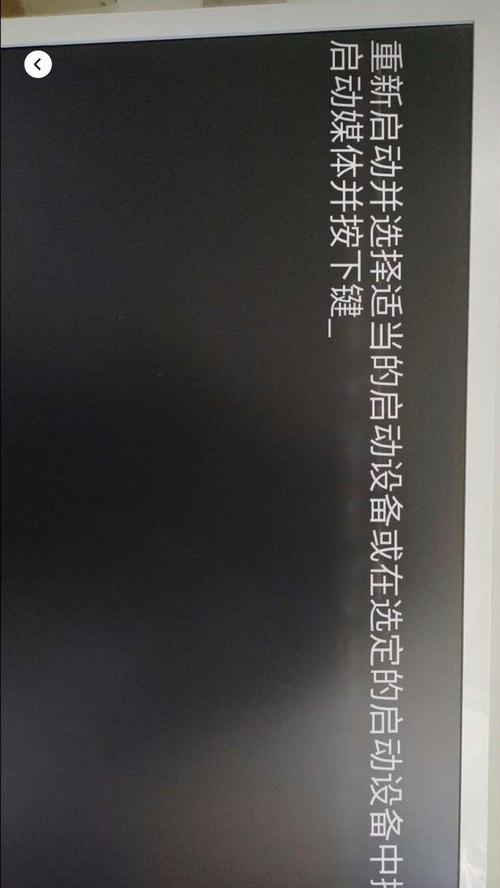 重新启动并选择适当的启动设备或在选定的启动设备中
启动媒体并按下键_